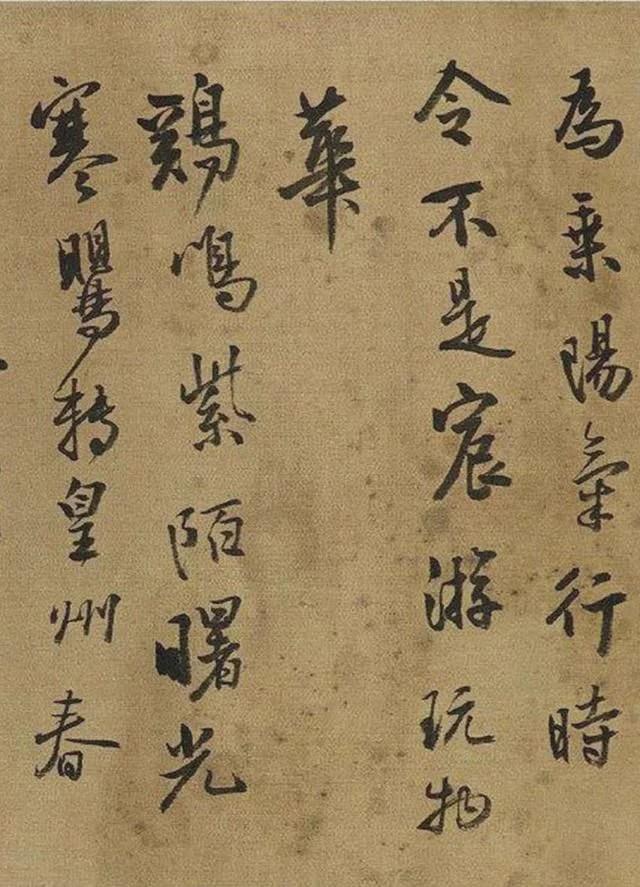 為乘陽氣行時
令不是宸游玩物
華
鷄鳴紫陌曙光
寒鸎轉皇州春